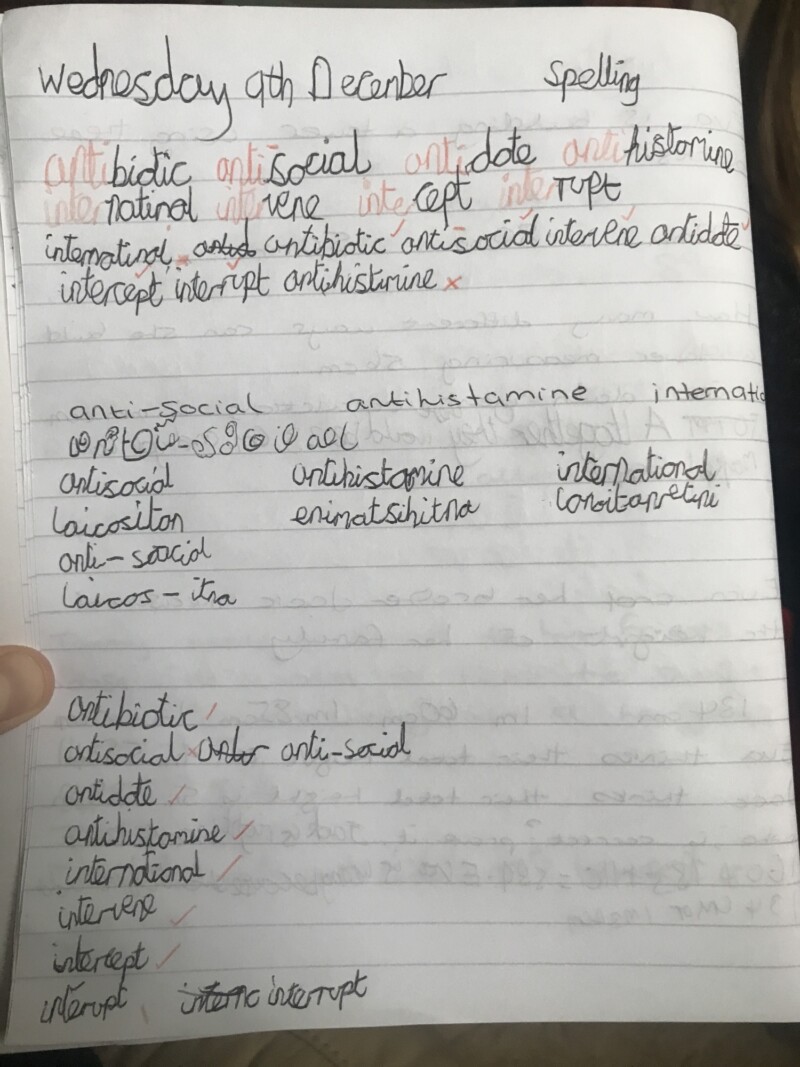 Wednesday 9th December Spelling
antibiotic antisocial antidote antihistomine
internatinal intervene intercept interrupt
internatinal antibiotic antisocial intervene antidote
intercept interrupt antihistimine
anti-social antihistamine internatio
anti-social
antisocial antihistamine international
laicositan enimatsihitna lanoitanretni
anti-soocial
laicos-itna
antibiotic
antisocial anti-social
antidote
antihistamine
international
intervene
intercept
interupt interrupt